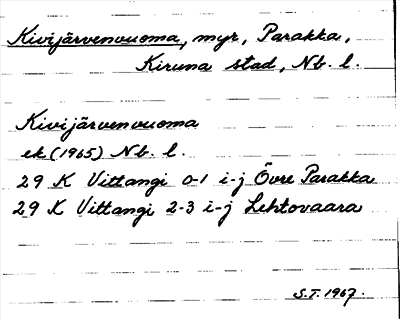 Kivijärvenvuoma, myr, Parakka,
Kiruna stad, Nb. l.
Kivijärvenvuoma
ek (1965) Nb. l.
29 K Vittangi 0-1 i-j Övre Parakka
29 K Vittangi 2-3 i-j Lehtovaara
S.T. 1967.